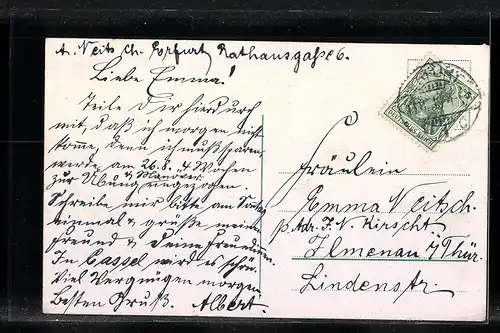 A. Neitsch. Erfurt Rathausgaße 6.
Liebe Emma!
Teile Dir hierdurch
mit, daß ich morgen nicht
kome, denn ich muß sparen,
werde am 26.8. 4 Wochen
zur Übung & Manöver eingezogen.
Schreibe mir bitte am Sontag
einmal & grüße meine
Freund & Deine Freundinen.
In Cassel wird es schön.
Viel Vergnügen morgen
Besten Gruß. Albert.
Fräulein
Emma Neitsch.
p. Adr. F. N. Kirscht
Ilmenau i/Thür.
Lindenstr.